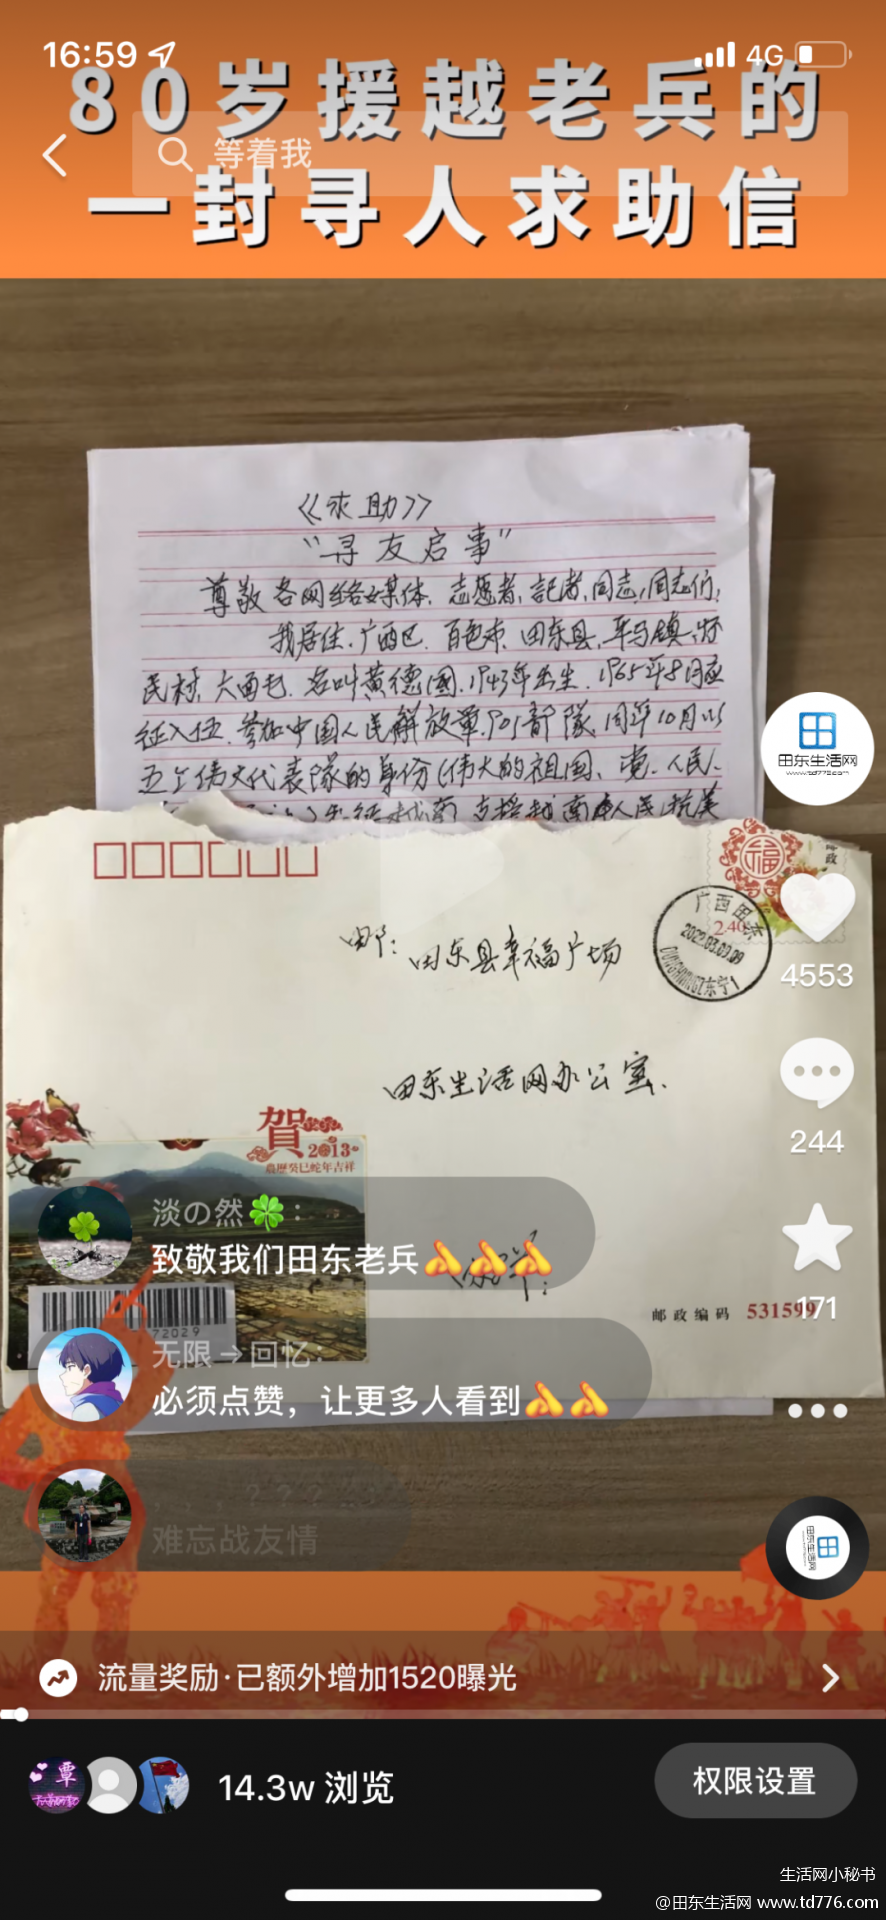 16:59
4G
80岁援越老兵的
等着我
一封寻人求助信
《求助》
"寻友启事"
尊敬各网络媒体、志愿者、記者、同志、同志们,
我居住广西区、百色市、田东县、平马镇、
民村,六西屯,名叫黄德國,1943年出生,1965年8月应
征入伍,参加中国人民解放軍905部隊,同年10月以
五上偉大代表隊的身份(伟大的祖国、党、人民、
支援越南人民抗美
田东生活网
www.td776.com
邮政
福
2.40
广西田东
2022.03.03.09
东宁1
邮:
田东县幸福广场
4553
田东生活网办公室.
244
賀
2013
農歷癸巳蛇年吉祥
淡の然🍀:
致敬我们田东老兵🙏🙏🙏
邮政编码 531599
171
72029
无限→回忆:
必须点赞，让更多人看到🙏🙏
难忘战友情
田东生活网
流量奖励·已额外增加1520曝光
覃
14.3w 浏览
权限设置
生活网小秘书
@田东生活网 www.td776.com